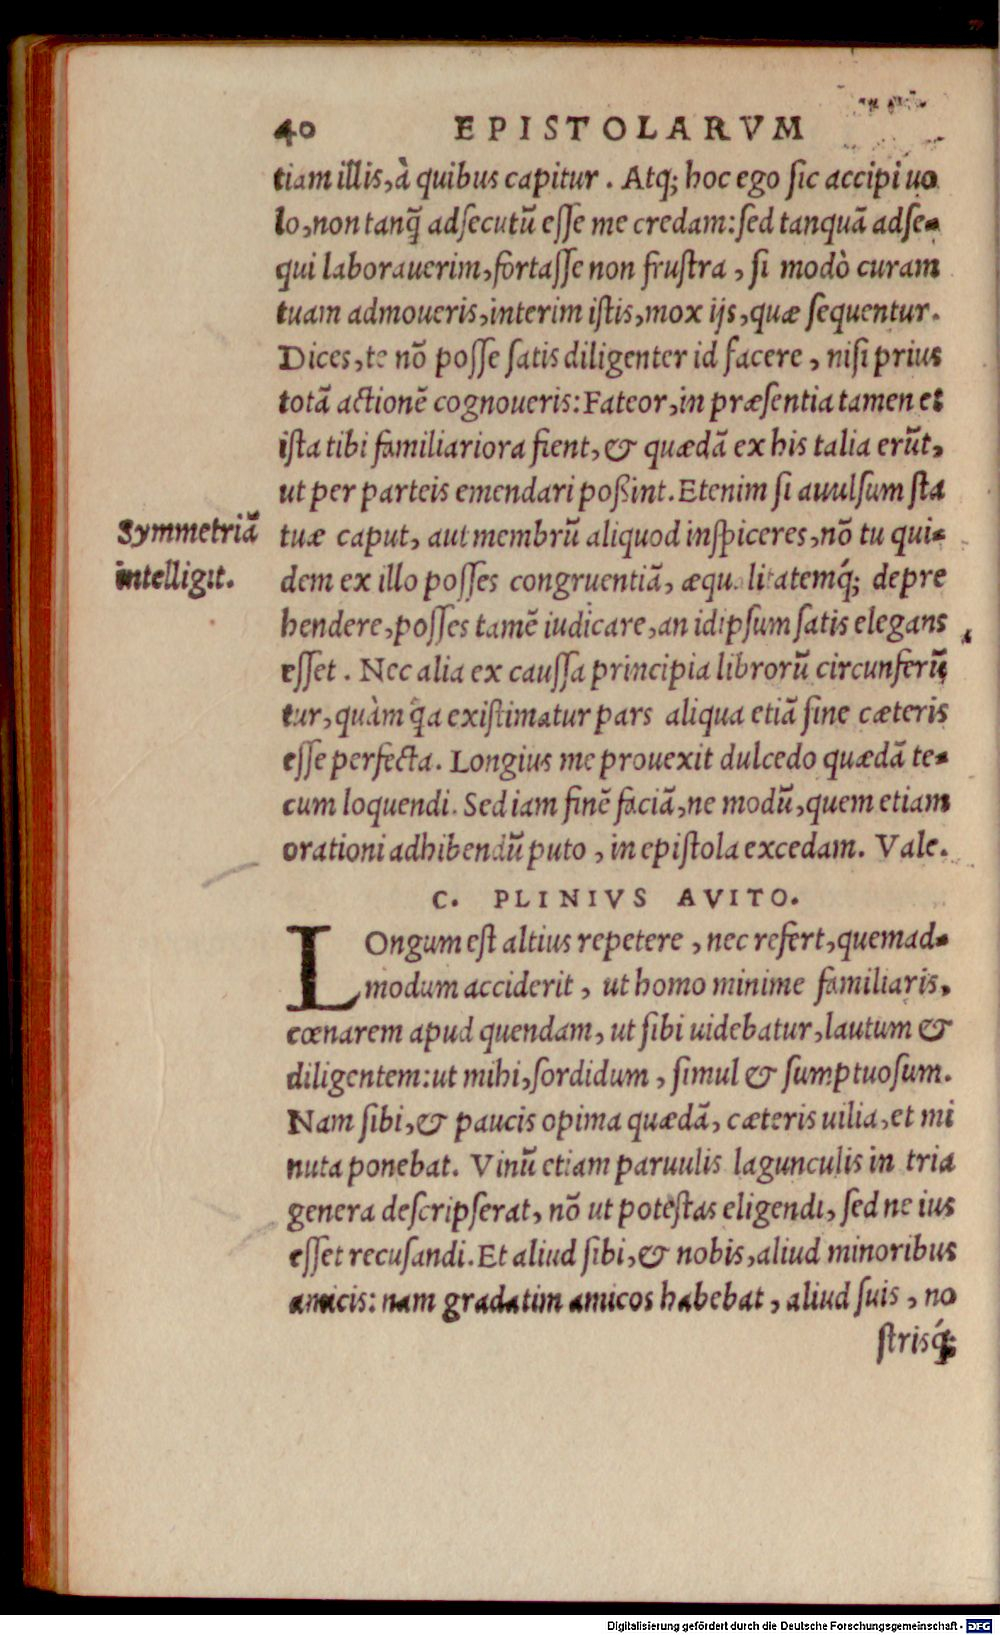 40 EPISTOLARVM
tiam illis, à quibus capitur. Atq; hoc ego sic accipi uo
lo, non tanq̃ adsecutũ esse me credam: sed tanquã adse-
qui laborauerim, fortasse non frustra, si modò curam
tuam admoueris, interim istis, mox ijs, quæ sequentur.
Dices, te nõ posse satis diligenter id facere, nisi prius
totã actionẽ cognoueris: Fateor, in præsentia tamen et
ista tibi familiariora fient, & quædã ex his talia erũt,
ut per parteis emendari poßint. Etenim si auulsum sta
Symmetriã
intelligit.
tuæ caput, aut membrũ aliquod inspiceres, nõ tu qui-
dem ex illo posses congruentiã, æqualitatemq́; depre
hendere, posses tamẽ iudicare, an id ipsum satis elegans
esset. Nec alia ex caussa principia librorũ circunferũ
tur, quàm q̃a existimatur pars aliqua etiã sine cæteris
esse perfecta. Longius me prouexit dulcedo quædã te-
cum loquendi. Sed iam finẽ faciã, ne modũ, quem etiam
orationi adhibendũ puto, in epistola excedam. Vale.
C. PLINIVS AVITO.
LOngum est altius repetere, nec refert, quemad-
modum acciderit, ut homo minime familiaris,
cœnarem apud quendam, ut sibi uidebatur, lautum &
diligentem: ut mihi, sordidum, simul & sumptuosum.
Nam sibi, & paucis opima quædã, cæteris uilia, et mi
nuta ponebat. Vinũ etiam paruulis lagunculis in tria
genera descripserat, nõ ut potestas eligendi, sed ne ius
esset recusandi. Et aliud sibi, & nobis, aliud minoribus
amicis: nam gradatim amicos habebat, aliud suis, no
strisq́;
Digitalisierung gefördert durch die Deutsche Forschungsgemeinschaft - DFG